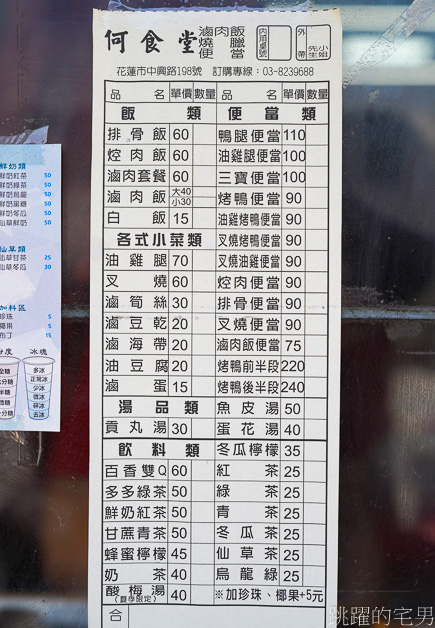 何食堂
滷肉飯
燒臘
便當
內用桌號
外帶
先生
小姐
花蓮市中興路198號 訂購專線：03-8239688
品名 單價 數量 品名 單價 數量
飯類 便當類
排骨飯 60 鴨腿便當 110
焢肉飯 60 油雞腿便當 100
滷肉套餐 60 三寶便當 100
滷肉飯 大40 小30 烤鴨便當 90
白飯 15 油雞烤鴨便當 90
各式小菜類 叉燒烤鴨便當 90
油雞腿 70 叉燒油雞便當 90
叉燒 60 焢肉便當 90
滷筍絲 30 排骨便當 90
滷豆乾 20 叉燒便當 90
滷海帶 20 滷肉飯便當 75
油豆腐 20 烤鴨前半段 220
滷蛋 15 烤鴨後半段 240
湯品類 魚皮湯 50
貢丸湯 30 蛋花湯 40
飲料類 冬瓜檸檬 35
百香雙Q 60 紅茶 25
多多綠茶 50 綠茶 25
鮮奶紅茶 50 青茶 25
甘蔗青茶 50 冬瓜茶 25
蜂蜜檸檬 45 仙草茶 25
奶茶 40 烏龍綠 25
酸梅湯 (夏季限定) 40 ※加珍珠、椰果+5元
合
鮮奶類
鮮奶紅茶 50
鮮奶綠茶 50
鮮奶烏龍 50
鮮奶黑糖 50
鮮奶冬瓜 50
仙草鮮奶 50
仙草類
仙草甘茶 25
仙草冬瓜 30
加料區
珍珠 5
椰果 5
布丁 15
甜度 冰塊
全糖 多冰
正常冰
少冰
半糖 微冰
微糖 碎冰
去冰
跳躍的宅男